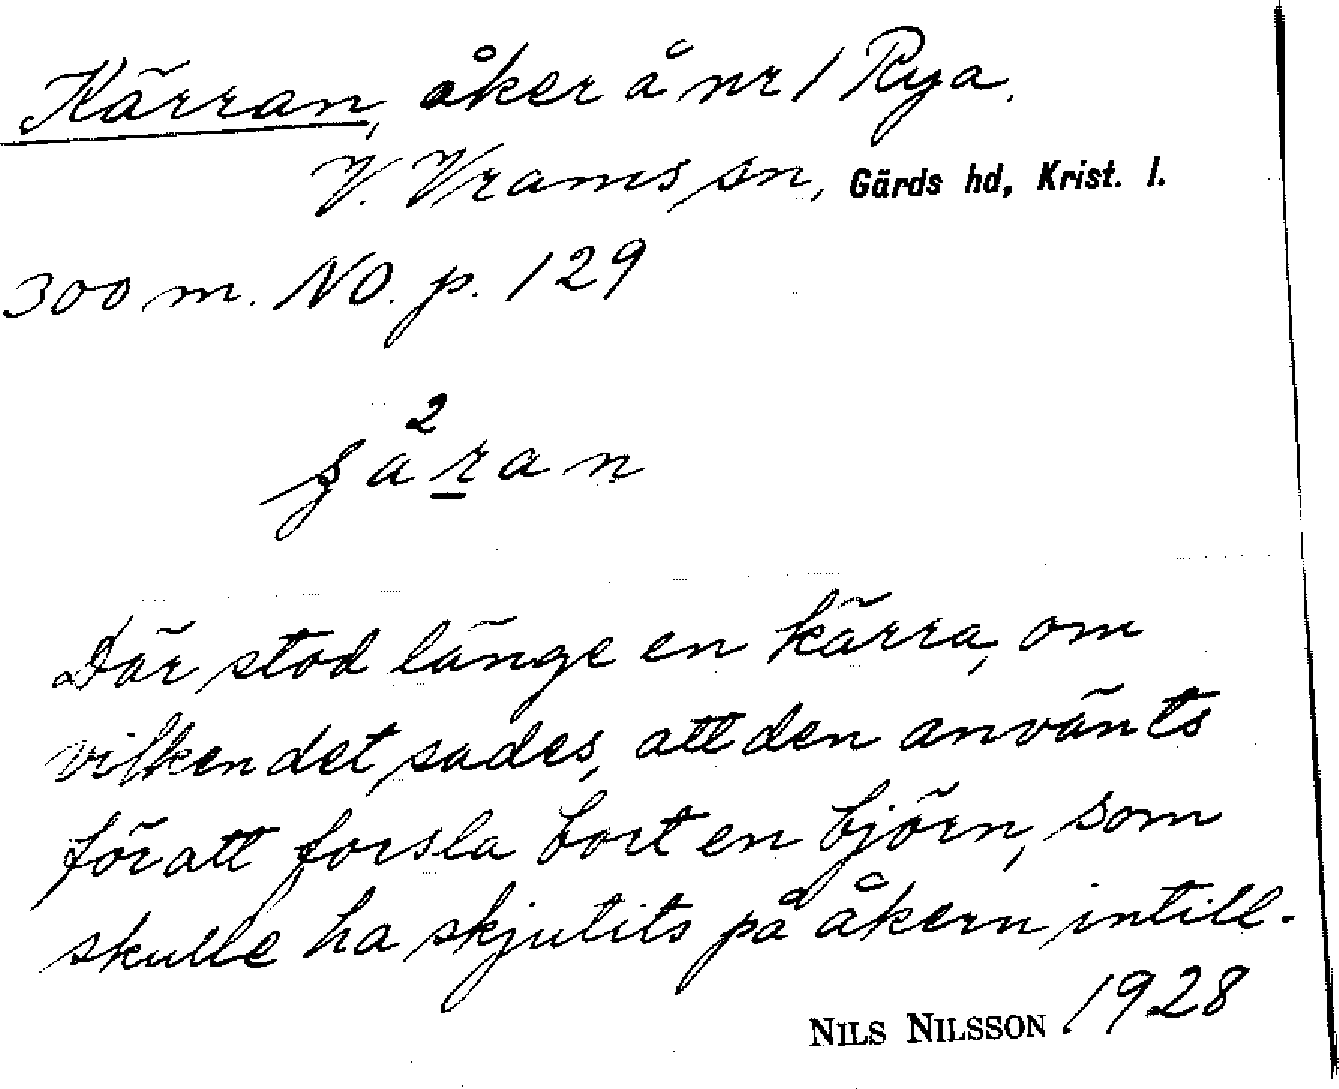 Kärran, åker å nr 1 Rya.
V. Vrams sn, Gärds hd, Krist. l.
300 m. NO. p. 129
2
Där stod länge en kärra, om
vilken det sades, att den använts
för att forsla bort en björn, som
skulle ha skjutits på åkern intill.
NILS NILSSON 1928